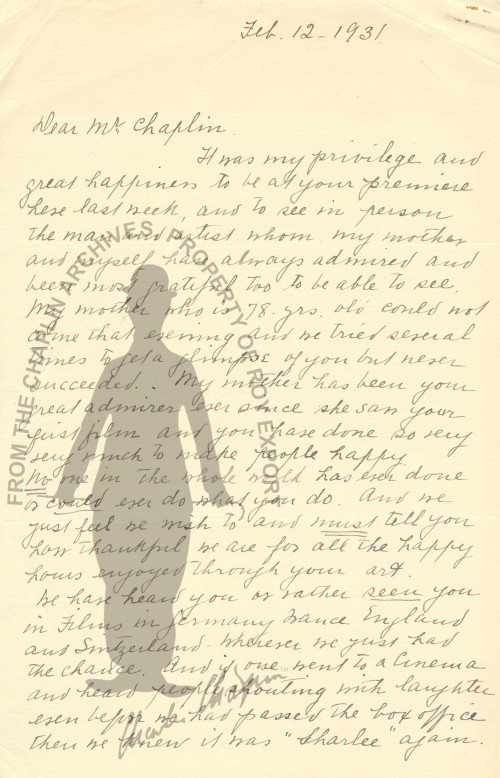 Feb. 12 - 1931
Dear Mr Chaplin.
It was my privilege and
great happiness to be at your premiere
here last week, and to see in person
the man and artist whom my mother
and myself have always admired and
been most grateful too to be able to see.
My mother who is 78. yrs. old could not
come that evening and we tried several
times to get a glimpse of you but never
succeeded. My mother has been your
great admirer ever since she saw your
first film and you have done so very
very much to make people happy
No one in the whole has ever done
or could ever do what you do. And we
just feel we wish to and must tell you
how thankful we are for all the happy
hours enjoyed through your art.
We have heard you or rather seen you
in Films in Germany France England
and Switzerland wherever we just had
the chance. And if one went to a Cinema
and heard people shouting with laughter
even before we had passed the box office
then we knew it was "Sharlee" again.
FROM THE CHAPLIN ARCHIVES, PROPERTY OF ROY EXPORT
Charlie Chaplin TM